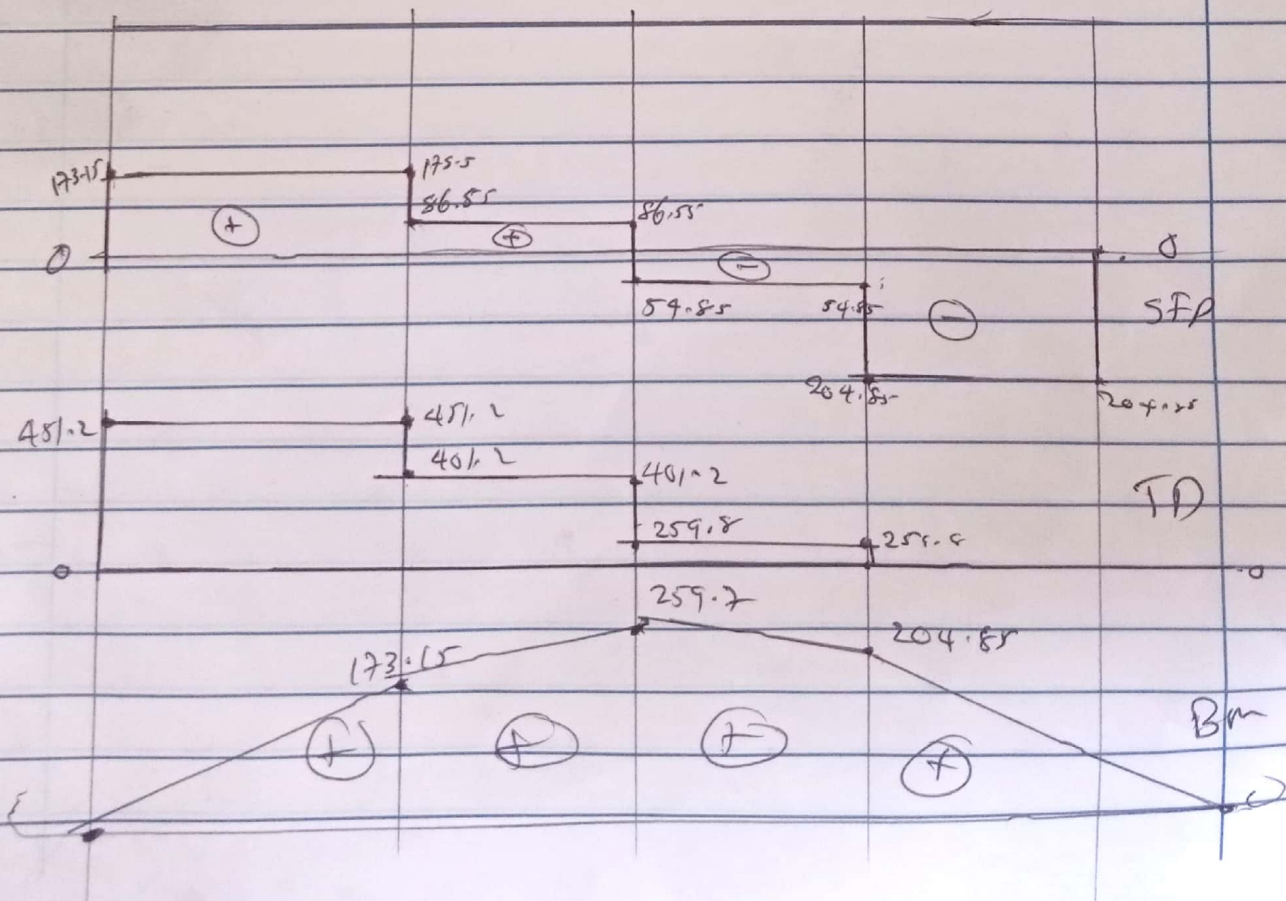 173.15 175.5
86.55 86.55
+ +
0 - 0
54.85 54.85 - SFD
204.85 204.85
451.2 451.2
401.2 401.2 TD
259.8 259.8
0 0
259.7
173.15 204.85
+ + + + Bm